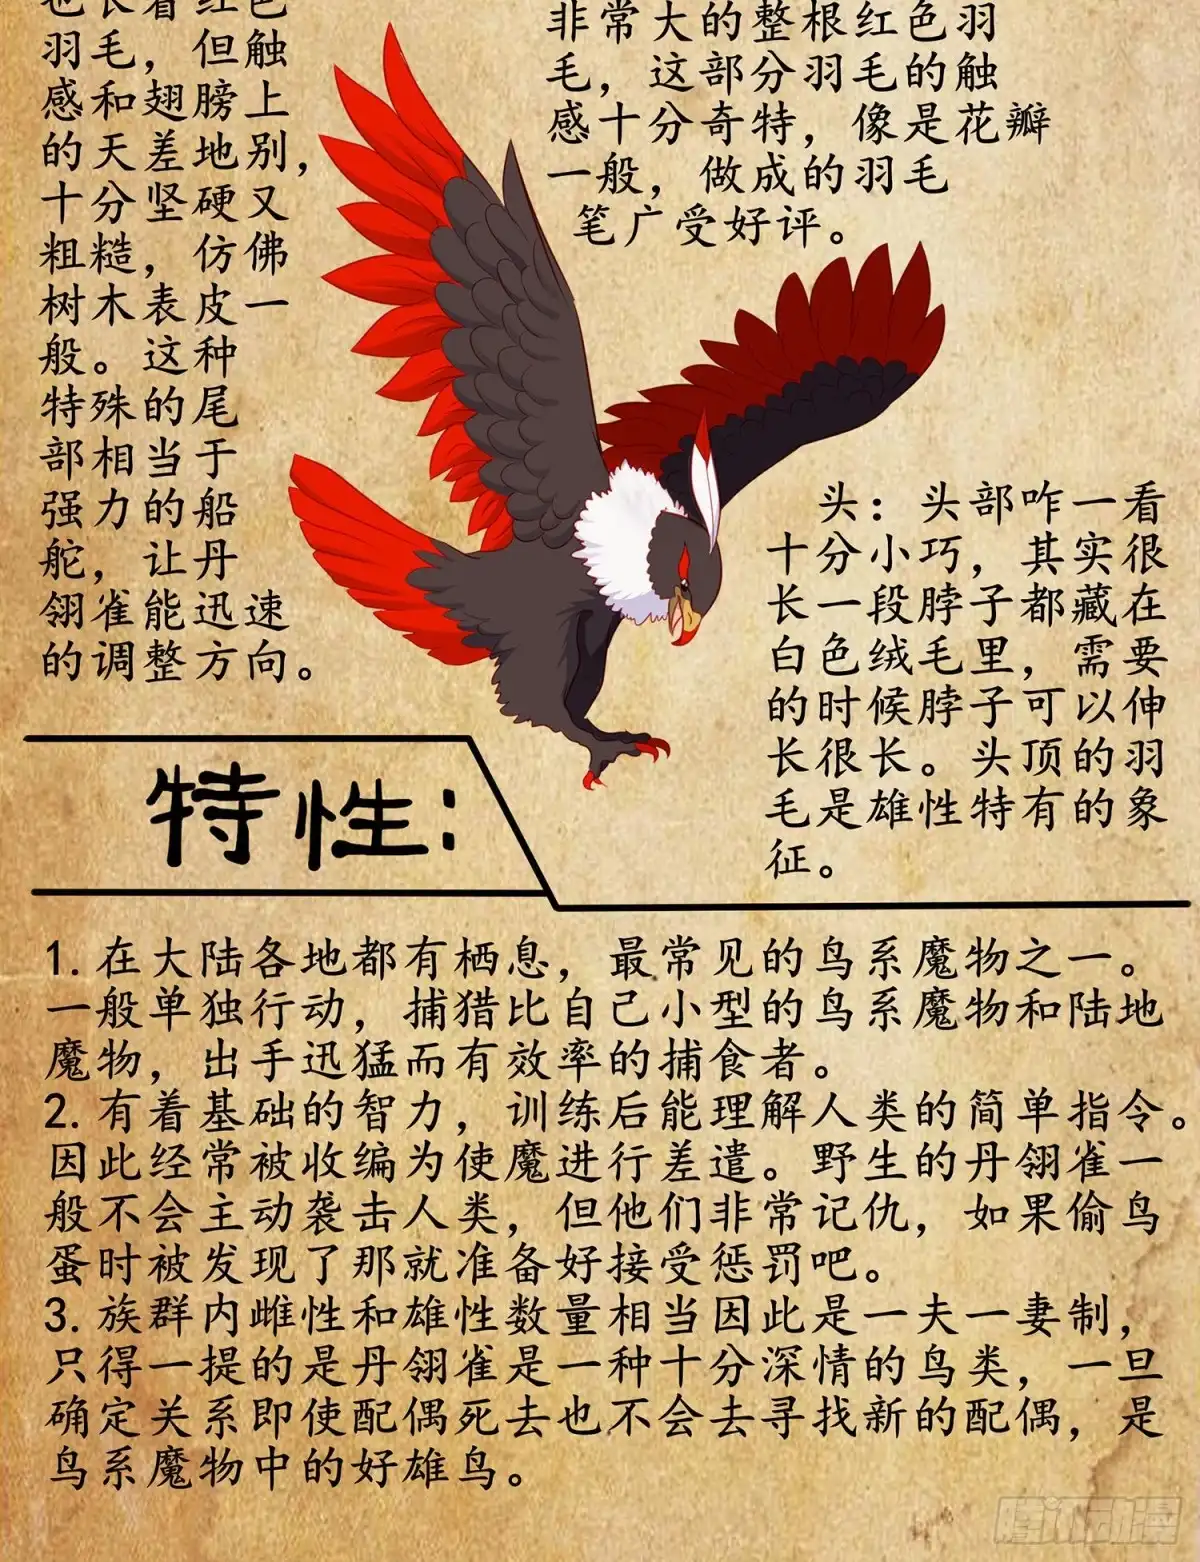 也长着红色
羽毛，但触
感和翅膀上
的天差地别，
十分坚硬又
粗糙，仿佛
树木表皮一
般。这种
特殊的尾
部相当于
强力的船
舵，让丹
翎雀能迅速
的调整方向。
非常大的整根红色羽
毛，这部分羽毛的触
感十分奇特，像是花瓣
一般，做成的羽毛
笔广受好评。
头：头部咋一看
十分小巧，其实很
长一段脖子都藏在
白色绒毛里，需要
的时候脖子可以伸
长很长。头顶的羽
毛是雄性特有的象
征。
特性：
1. 在大陆各地都有栖息，最常见的鸟系魔物之一。
一般单独行动，捕猎比自己小型的鸟系魔物和陆地
魔物，出手迅猛而有效率的捕食者。
2. 有着基础的智力，训练后能理解人类的简单指令。
因此经常被收编为使魔进行差遣。野生的丹翎雀一
般不会主动袭击人类，但他们非常记仇，如果偷鸟
蛋时被发现了那就准备好接受惩罚吧。
3. 族群内雌性和雄性数量相当因此是一夫一妻制，
只得一提的是丹翎雀是一种十分深情的鸟类，一旦
确定关系即使配偶死去也不会去寻找新的配偶，是
鸟系魔物中的好雄鸟。
腾讯动漫